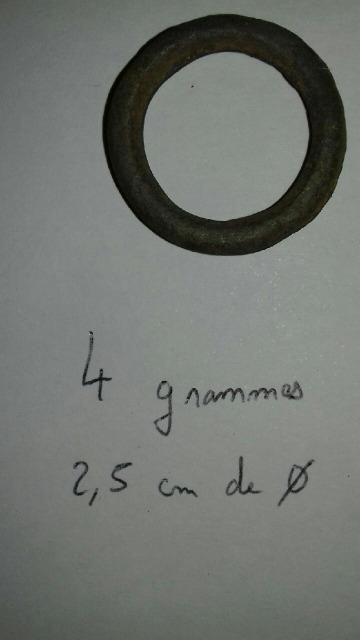 4 grammes
2,5 cm de Ø